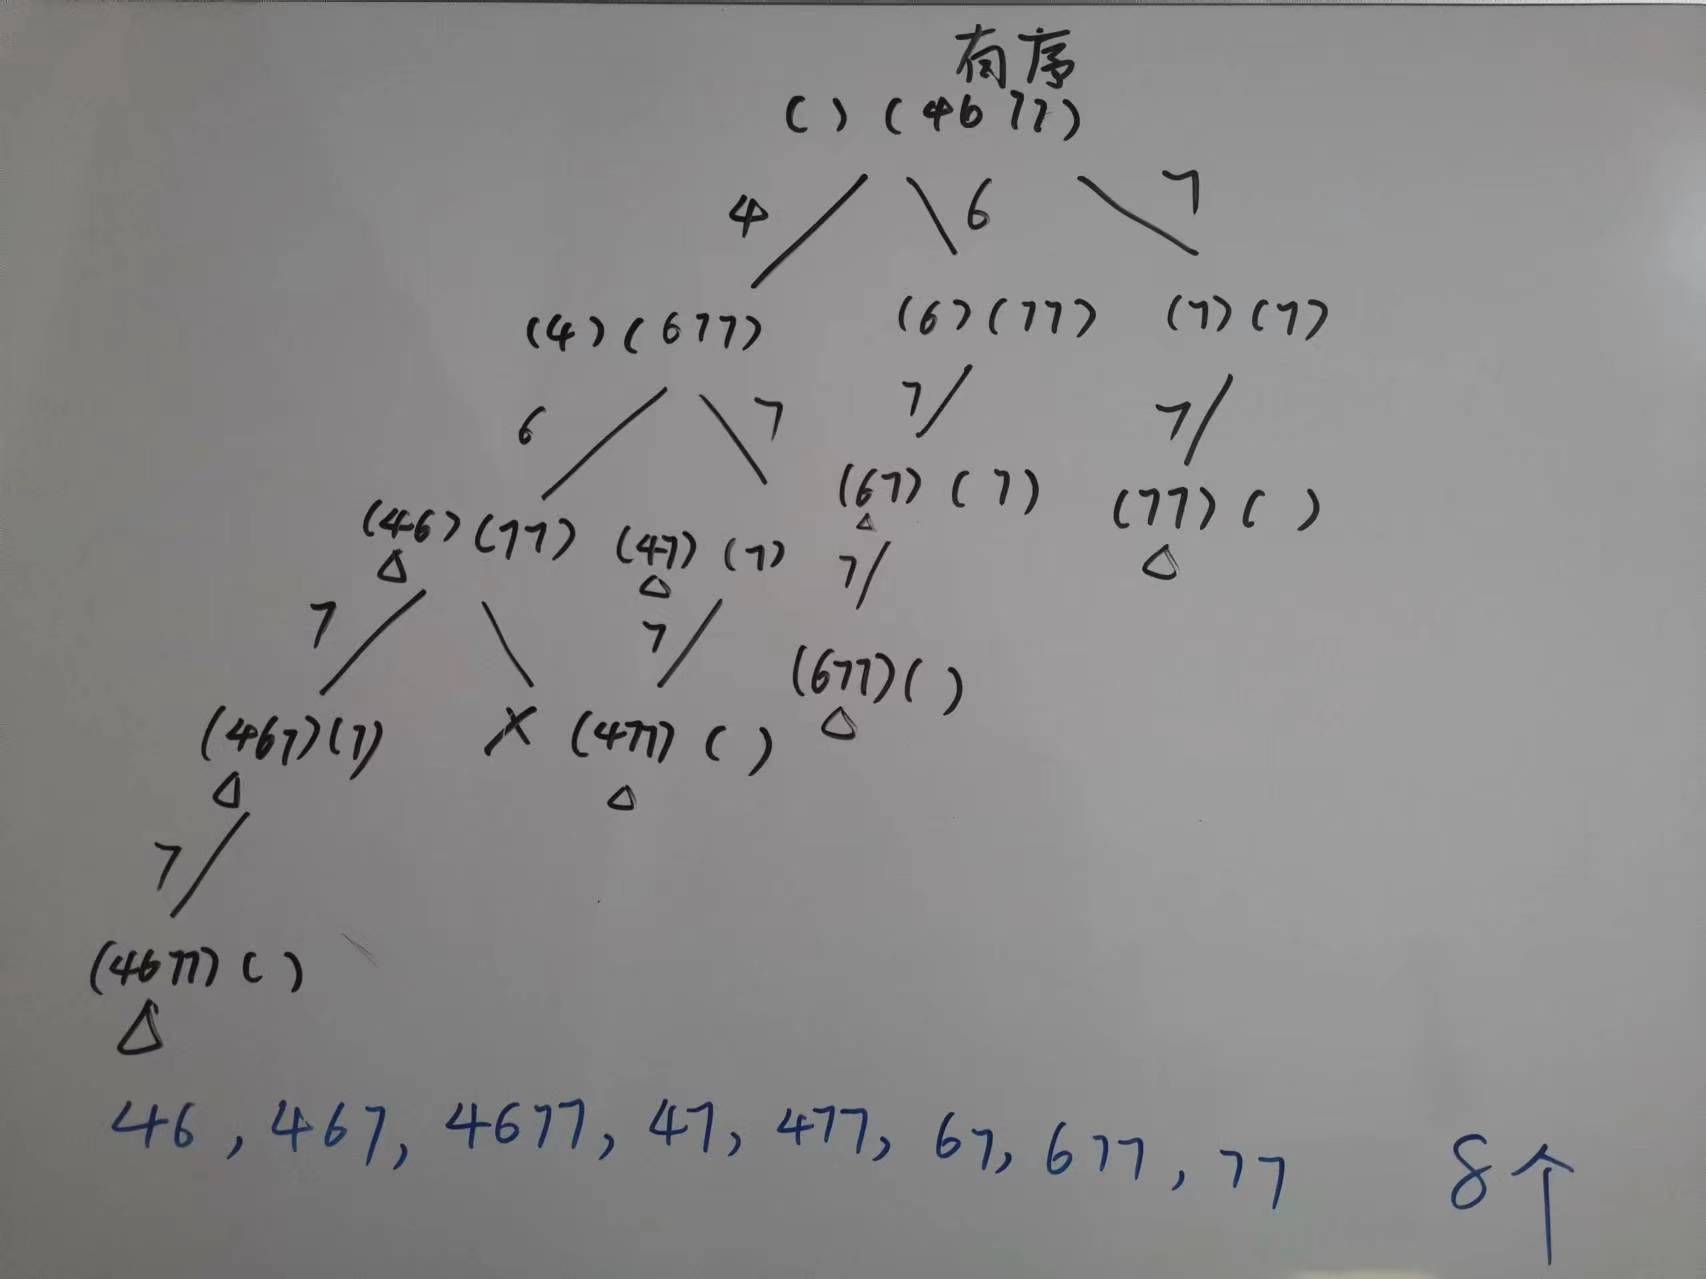 有序
( ) ( 4 6 7 7 )
4 6 7
(4) ( 6 7 7 ) (6) (7 7) (7) (7)
6 7 7 7
(46) (77) (47) (7) (67) (7) (77) ( )
7 7 7
(467) (7) × (477) ( ) (677) ( )
7
(4677) ( )
46 , 467, 4677, 47, 477, 67, 677 , 77 8个